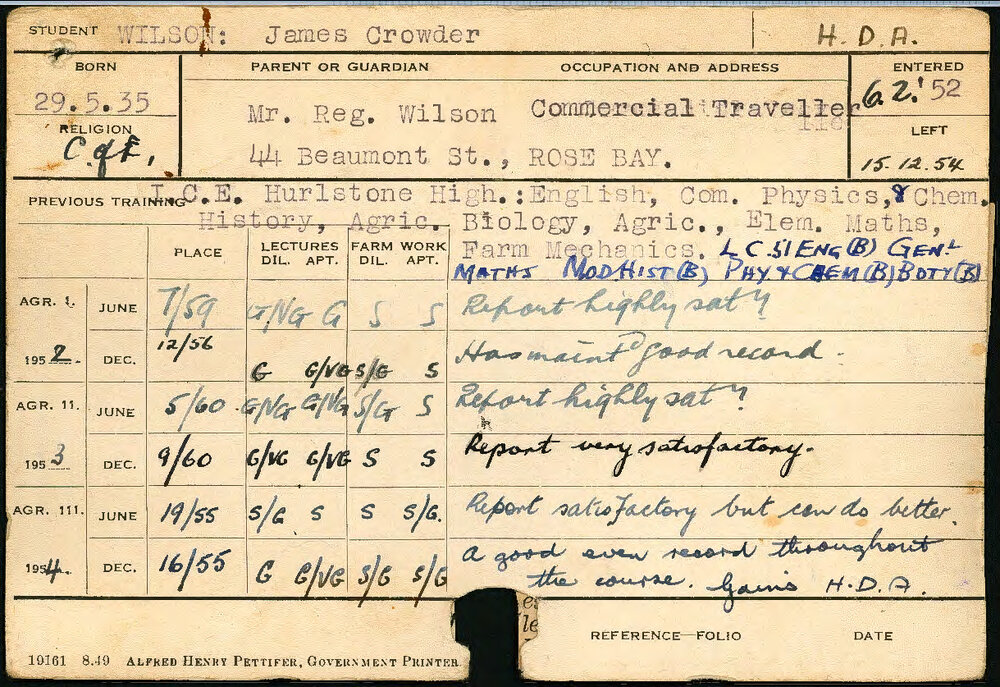 STUDENT WILSON: James Crowder H.D.A.
BORN PARENT OR GUARDIAN OCCUPATION AND ADDRESS ENTERED
29.5.35 Mr. Reg. Wilson Commercial Traveller 6.2.'52
RELIGION LEFT
C of E, 44 Beaumont St., ROSE BAY. 15.12.54
PREVIOUS TRAINING I.C.E. Hurlstone High.:English, Com. Physics,& Chem.
History, Agric. Biology, Agric., Elem. Maths,
Farm Mechanics. L C 51 ENG (B) GENL
MATHS MOD HIST (B) PHY & CHEM (B) BOTY (B)
PLACE LECTURES FARM WORK
DIL. APT. DIL. APT.
AGR. 1. JUNE 7/59 G/VG G S S Report highly saty
1952. DEC. 12/56 G G/VG S/G S Has maintd good record.
AGR. 11. JUNE 5/60 G/VG G/VG S/G S Report highly saty
1953 DEC. 9/60 G/VG G/VG S S Report very satisfactory.
AGR. 111. JUNE 19/55 S/G S S S/G. Report satisfactory but can do better.
1954. DEC. 16/55 G G/VG S/G S/G A good even record throughout
the course. Gains H.D.A.
REFERENCE—FOLIO DATE
19161 8.49 ALFRED HENRY PETTIFER, GOVERNMENT PRINTER